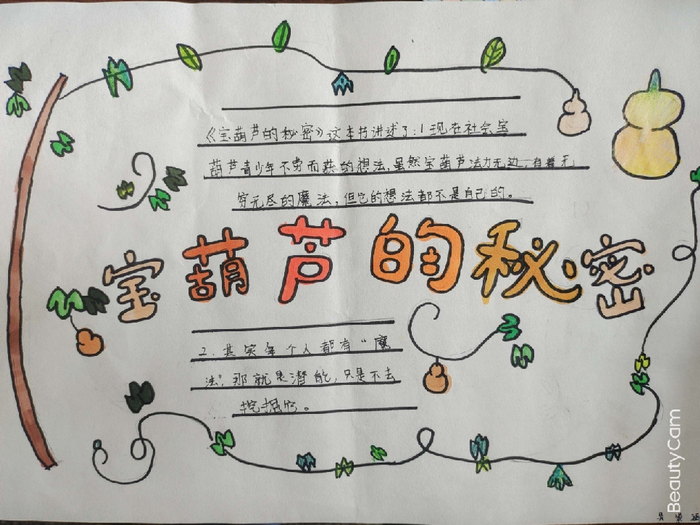 《宝葫芦的秘密》这本书讲述了:1现在社会宝
葫芦青少年不劳而获的想法,虽然宝葫芦法力无边,有着无
穷无尽的魔法,但它的想法都不是自己的。
宝葫芦的秘密
2.其实每个人都有“魔
法”那就是潜能,只是不去
挖掘它。
BeautyCam